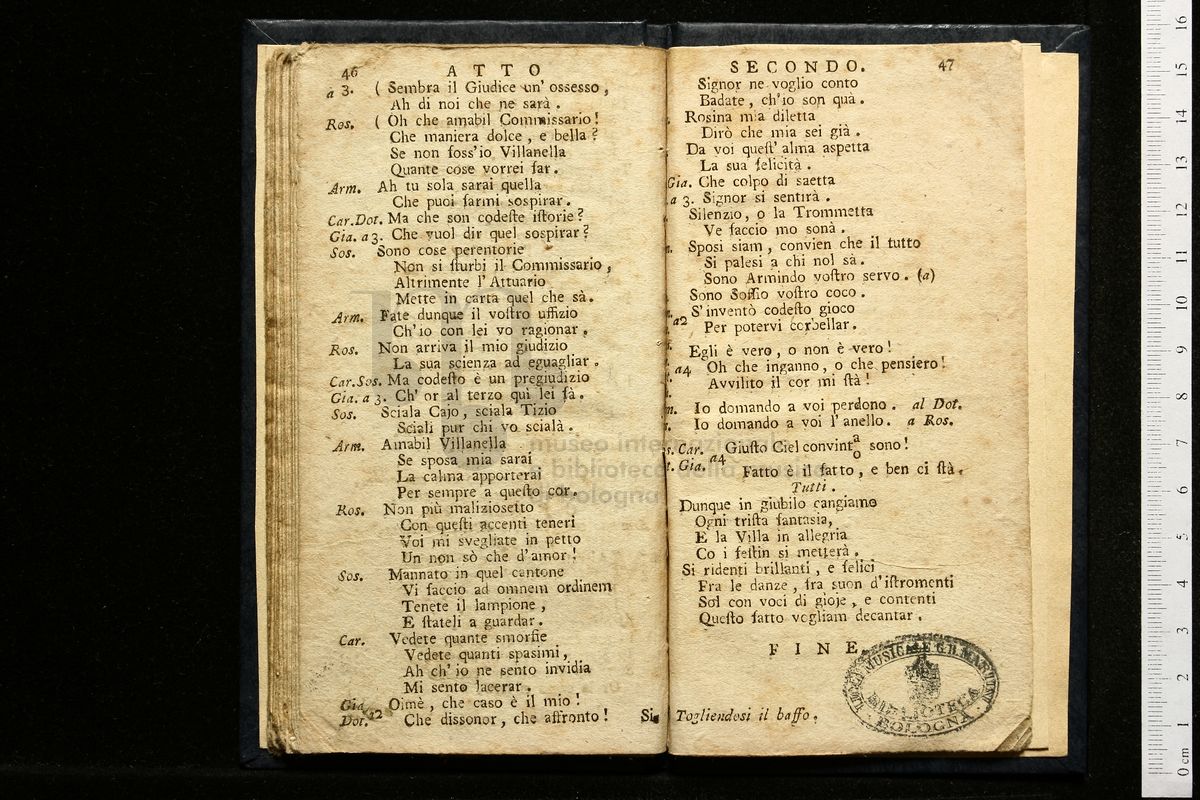 46 ATTO
a 3. ( Sembra il Giudice un' ossesso,
Ah di noi che ne sarà.
Ros. ( Oh che amabil Commissario!
Che maniera dolce, e bella?
Se non foss'io Villanella
Quante cose vorrei far.
Arm. Ah tu sola sarai quella
Che puoi farmi sospirar.
Car.Dot. Ma che son codeste istorie?
Gia. a 3. Che vuol dir quel sospirar?
Sos. Sono cose perentorie
Non si sturbi il Commissario,
Altrimente l'Attuario
Mette in carta quel che sà.
Arm. Fate dunque il vostro uffizio
Ch'io con lei vo ragionar.
Ros. Non arriva il mio giudizio
La sua scienza ad eguagliar.
Car.Sos. Ma codesto è un pregiudizio
Gia. a 3. Ch' or al terzo quì lei fà.
Sos. Sciala Cajo, sciala Tizio
Sciali pur chi vo scialà.
Arm. Amabil Villanella
Se sposa mia sarai
La calma apporterai
Per sempre a questo cor.
Ros. Non più maliziosetto
Con questi accenti teneri
Voi mi svegliate in petto
Un non sò che d'amor!
Sos. Mannato in quel cantone
Vi faccio ad omnem ordinem
Tenete il lampione,
E stateli a guardar.
Car. Vedete quante smorfie
Vedete quanti spasimi,
Ah ch' io ne sento invidia
Mi sento lacerar.
Gia. Oimè, che caso è il mio!
Dot. a2 Che dissonor, che affronto!
Si-
SECONDO. 47
Signor ne voglio conto
Badate, ch'io son quà.
Rosina mia diletta
Dirò che mia sei già.
Da voi quest' alma aspetta
La sua felicità.
Gia. Che colpo di saetta
a 3. Signor si sentirà.
Silenzio, o la Trommetta
Ve faccio mo sonà.
Sposi siam, convien che il tutto
Si palesi a chi nol sà.
Sono Armindo vostro servo. (a)
Sono Soffio vostro coco.
S'inventò codesto gioco
a2 Per potervi corbellar.
Egli è vero, o non è vero!
a4 Oh che inganno, o che pensiero!
Avvilito il cor mi stà!
Io domando a voi perdono. al Dot.
Io domando a voi l'anello. a Ros.
Car. Giusto Ciel convint a/o sono!
Gia. a4 Fatto è il fatto, e ben ci stà.
Tutti.
Dunque in giubilo cangiamo
Ogni trista fantasia,
E la Villa in allegria
Co i festin si metterà.
Si ridenti brillanti, e felici
Fra le danze, fra suon d'istromenti
Sol con voci di gioje, e contenti
Questo fatto vogliam decantar.
FINE.
Togliendosi il baffo.
LICEO MUSICALE G.B. MARTINI
BIBLIOTECA
BOLOGNA
museo internazionale
e biblioteca della musica
di bologna
0 cm 1 2 3 4 5 6 7 8 9 10 11 12 13 14 15 16